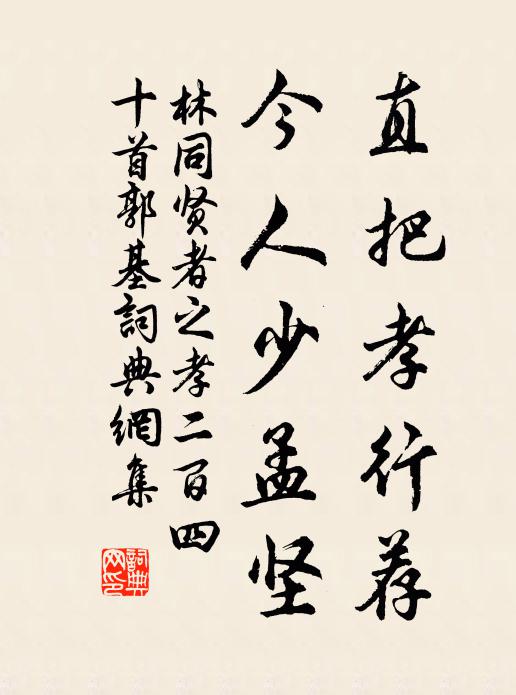 直把孝行荐
今人少孟坚
林同贤者之孝二百四
十首郭基詞典網集
詞典網印